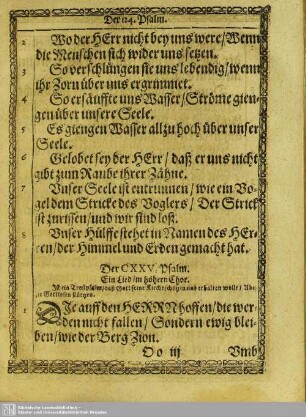 Der 124. Psalm.
2 Wo der HErr nicht bey uns were/ Wenn
die Menschen sich wider uns setzen.
3 So verschlüngen sie uns lebendig/ wenn
ihr Zorn über uns ergrimmet.
4 So ersäuffte uns Wasser/ Ströme gien-
gen über unsere Seele.
5 Es giengen Wasser allzu hoch über unser
Seele.
6 Gelobet sey der HErr/ daß er uns nicht
gibt zum Raube ihrer Zähne.
7 Unser Seele ist entrunnen/ wie ein Vo-
gel dem Stricke des Voglers/ Der Strick
ist zurissen/ und wir sind loß.
8 Unser Hülffe stehet im Namen des HEr-
ren/ der Himmel und Erden gemacht hat.
Der CXXV. Psalm.
Ein Lied/ im höhern Chor.
Ist ein Trostpsalm/ daß Gott seine Kirche schützen und erhalten wolle/
1 DIe auff den HERRN hoffen/ die wer-
den nicht fallen/ Sondern ewig blei-
ben/ wie der Berg Zion.
Oo iij Umb